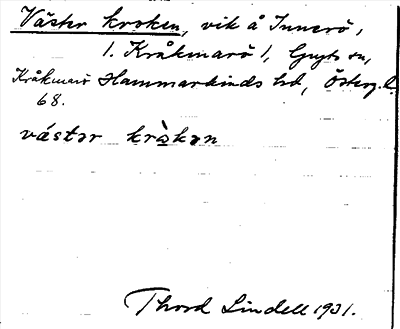 Väster kroken, vik å Innerö,
1. Kråkmarö 1, Gryts sn,
Kråkmarö Hammarkinds hd, Österg. l.
68.
västər kròkən
Thord Lindell 1931.